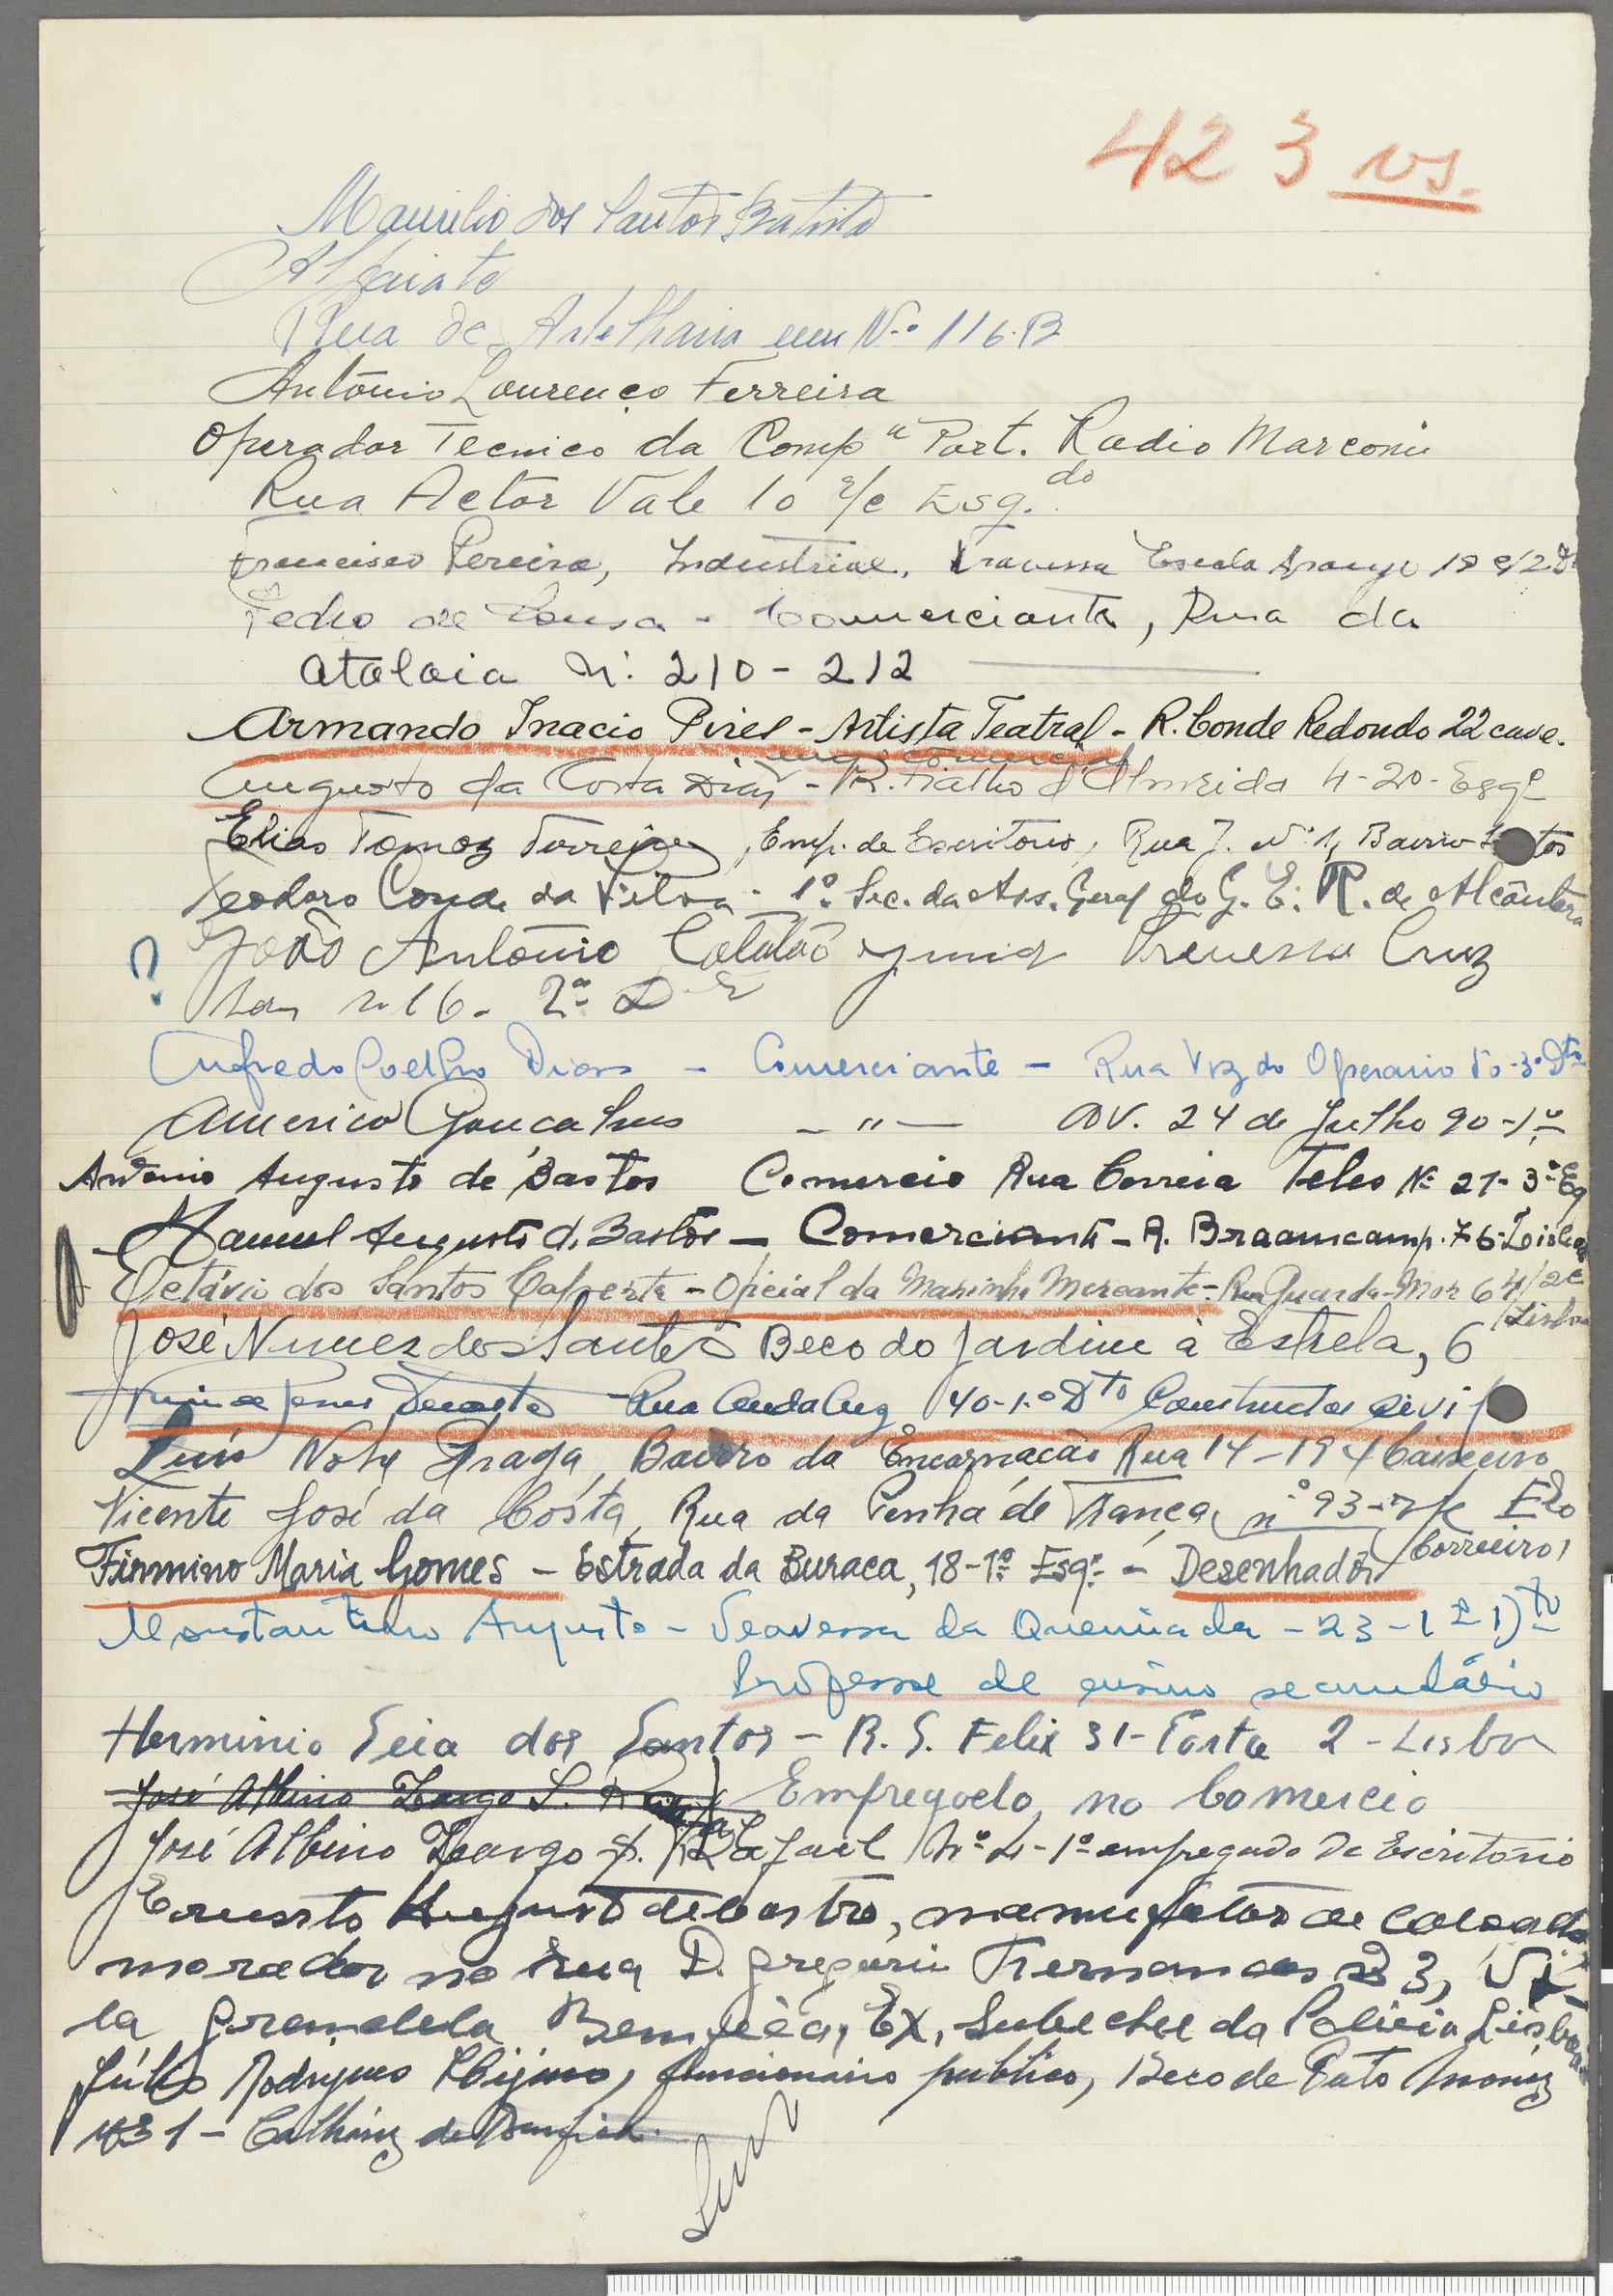 423 vs.
Maurilio dos Santos Batista
Alfaiate
Rua de Artelharia um N.º 116.B
António Lourenço Ferreira
Operador Tecnico da Compª Port. Radio Marconi
Rua Actor Vale 10 r/c Esq.do
Francisco Pereira, Industrial, Travessa Escola Araujo
Pedro de Sousa - Comerciante, Rua da
Atalaia N. 210-212
Armando Inacio Pires - Artista Teatral - R. Conde Redondo 22 cave.
emp comercial
Augusto da Costa Dias - R. Fialho d'Almeida 4-2º-Esqº
Elias Tomaz , Emp. de Escritorio, Rua J. Nº 1, Bairro
Teodoro Conde da Silva - 1º Sec. da Ass. Geral do G. E. R. de Alcântara
? João António Catalão Travessa Cruz
n 16. 2º
Alfredo Coelho Dias - Comerciante - Rua Voz do Operario 3º Dto
Americo Gonçalves - " - AV. 24 de Julho 90-1º
Antonio Augusto de Bastos Comercio Rua Correia Teles Nº 27-3º Eq
Manuel Augusto d. Bastos - Comerciante - R. Braamcamp. 76-Lisboa
Octávio dos Santos - Oficial da Marinha Mercante - Rua Guarda-Mor 64
Lisboa
José Nunes dos Santos Beco do Jardim à Estrela, 6
Rua Andaluz 40-1.º Dto Constructor civil
Luís Braga, Bairro da Encarnacão Rua 14-194 Caixeiro
Vicente José da Costa, Rua da Penha de França, nº 93-r/c
Correeiro
Firmino Maria Gomes - Estrada da Buraca, 18-1º Esqº - Desenhador
Augusto - Travessa da Queimada - 23-1º Dto
Professor de ensino secundário
Herminio Seia dos Santos - R. S. Felix 31-Porta 2 - Lisboa
José Albino Largo S. Empregado no Comercio
José Albino Largo S. Rafael Nº 4-1º empregado de Escritório
Ernesto Augusto de Castro, manufator de calçado
morador na rua D. Gregorio Fernandes 3, Vi-
la Grandela Bemfica, Ex, Subchefe da Policia Lisboa
Júlio Rodrigues , funcionario publico, Beco de Pato Moniz
- Calhariz de Benfica.